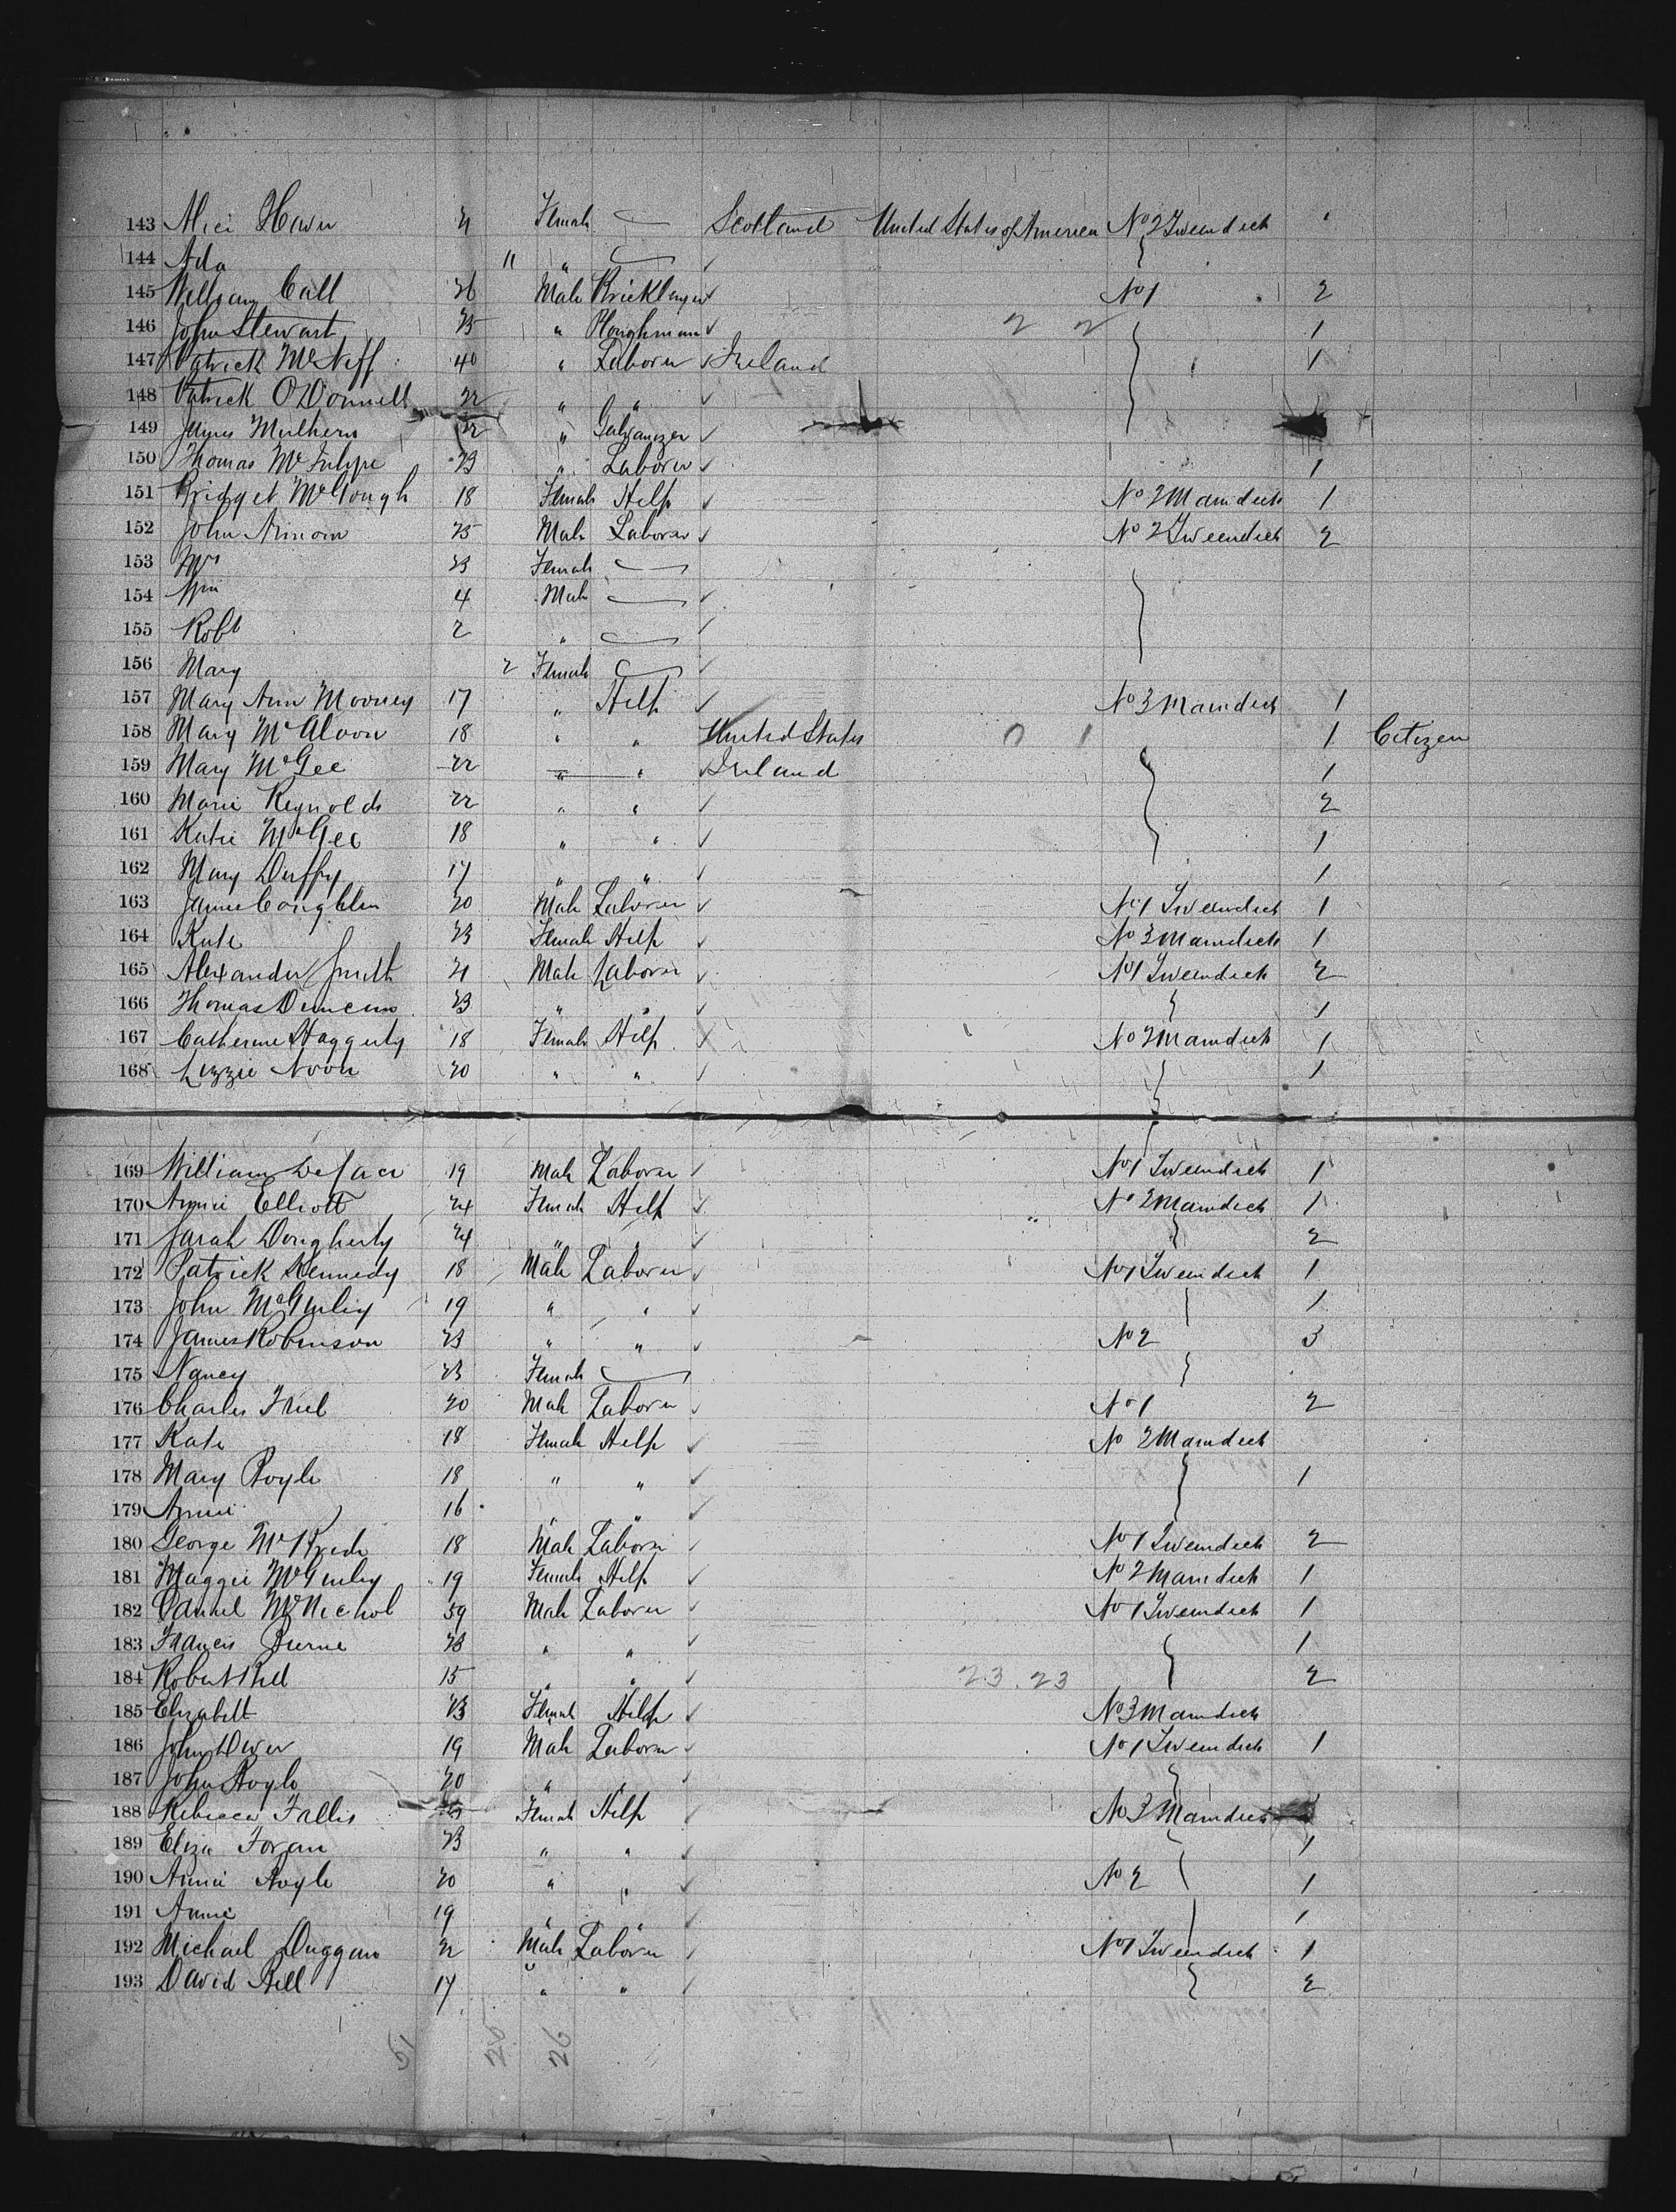 143 Female Scotland United States of America No 2 Tweendeck
144 Ada 11 " ✓
145 William Call 26 Male Bricklayer ✓ No 1 2
146 John Stewart 25 " Ploughman ✓ 2 2 1
147 Patrick McNiff 40 " Laborer ✓ Ireland 1
148 Patrick O'Donnell 22 " " ✓
149 James Mulhern 22 " Galvanizer ✓
150 Thomas 23 " Laborer ✓ 1
151 Bridget 18 Female Help ✓ No 2 Maindeck 1
152 John 25 Male Laborer ✓ No 2 Tweendeck 2
153 Mrs 23 Female
154 Wm 4 Male ✓
155 Robt 2 " ✓
156 Mary 2 Female ✓
157 Mary Ann Mooney 17 " Help ✓ No 3 Maindeck 1
158 Mary McAloon 18 " " United States 0 1 1 Citizen
159 Mary McGee 22 " " ✓ Ireland 1
160 Marie Reynolds 22 " " ✓ 2
161 Katie McGee 18 " " ✓ 1
162 Mary Duffy 17 " " ✓ 1
163 James Coughlin 20 Male Laborer ✓ No 1 Tweendeck 1
164 Kate 23 Female Help ✓ No 3 Maindeck 1
165 Alexander Smith 21 Male Laborer ✓ No 1 Tweendeck 2
166 Thomas Duncan 23 " " ✓ 1
167 Catherine Haggerty 18 Female Help ✓ No 2 Maindeck 1
168 Lizzie Noon 20 " " ✓ 1
169 William 19 Male Laborer ✓ No 1 Tweendeck 1
170 Annie Elliott 24 Female Help ✓ No 2 Maindeck 1
171 Sarah Dougherty 24 " " ✓ 2
172 Patrick Kennedy 18 Male Laborer ✓ No 1 Tweendeck 1
173 John McGinley 19 " " ✓ 1
174 James Robinson 23 " " ✓ No 2 3
175 Nancy 23 Female
176 Charles Friel 20 Male Laborer ✓ No 1 2
177 Kate 18 Female Help ✓ No 2 Maindeck
178 Mary Boyle 18 " " ✓ 1
179 Annie 16 " " ✓
180 George McBride 18 Male Laborer ✓ No 1 Tweendeck 2
181 Maggie McGinley 19 Female Help ✓ No 2 Maindeck 1
182 Daniel McNichol 59 Male Laborer ✓ No 1 Tweendeck 1
183 Francis 23 " " ✓ 1
184 Robert Bell 15 " " ✓ 23 . 23 2
185 Elizabeth 23 Female Help ✓ No 3 Maindeck
186 John 19 Male Laborer ✓ No 1 Tweendeck 1
187 John Boyle 20 " " ✓
188 Rebecca Fallis Female Help ✓ No 3 Maindeck
189 Eliza Foran 23 " " ✓ 1
190 Annie Boyle 20 " " ✓ No 2 1
191 Annie 19 " " ✓ 1
192 Michael Duggan 22 Male Laborer ✓ No 1 Tweendeck 1
193 David Bell 17 " " ✓ 2
51 26